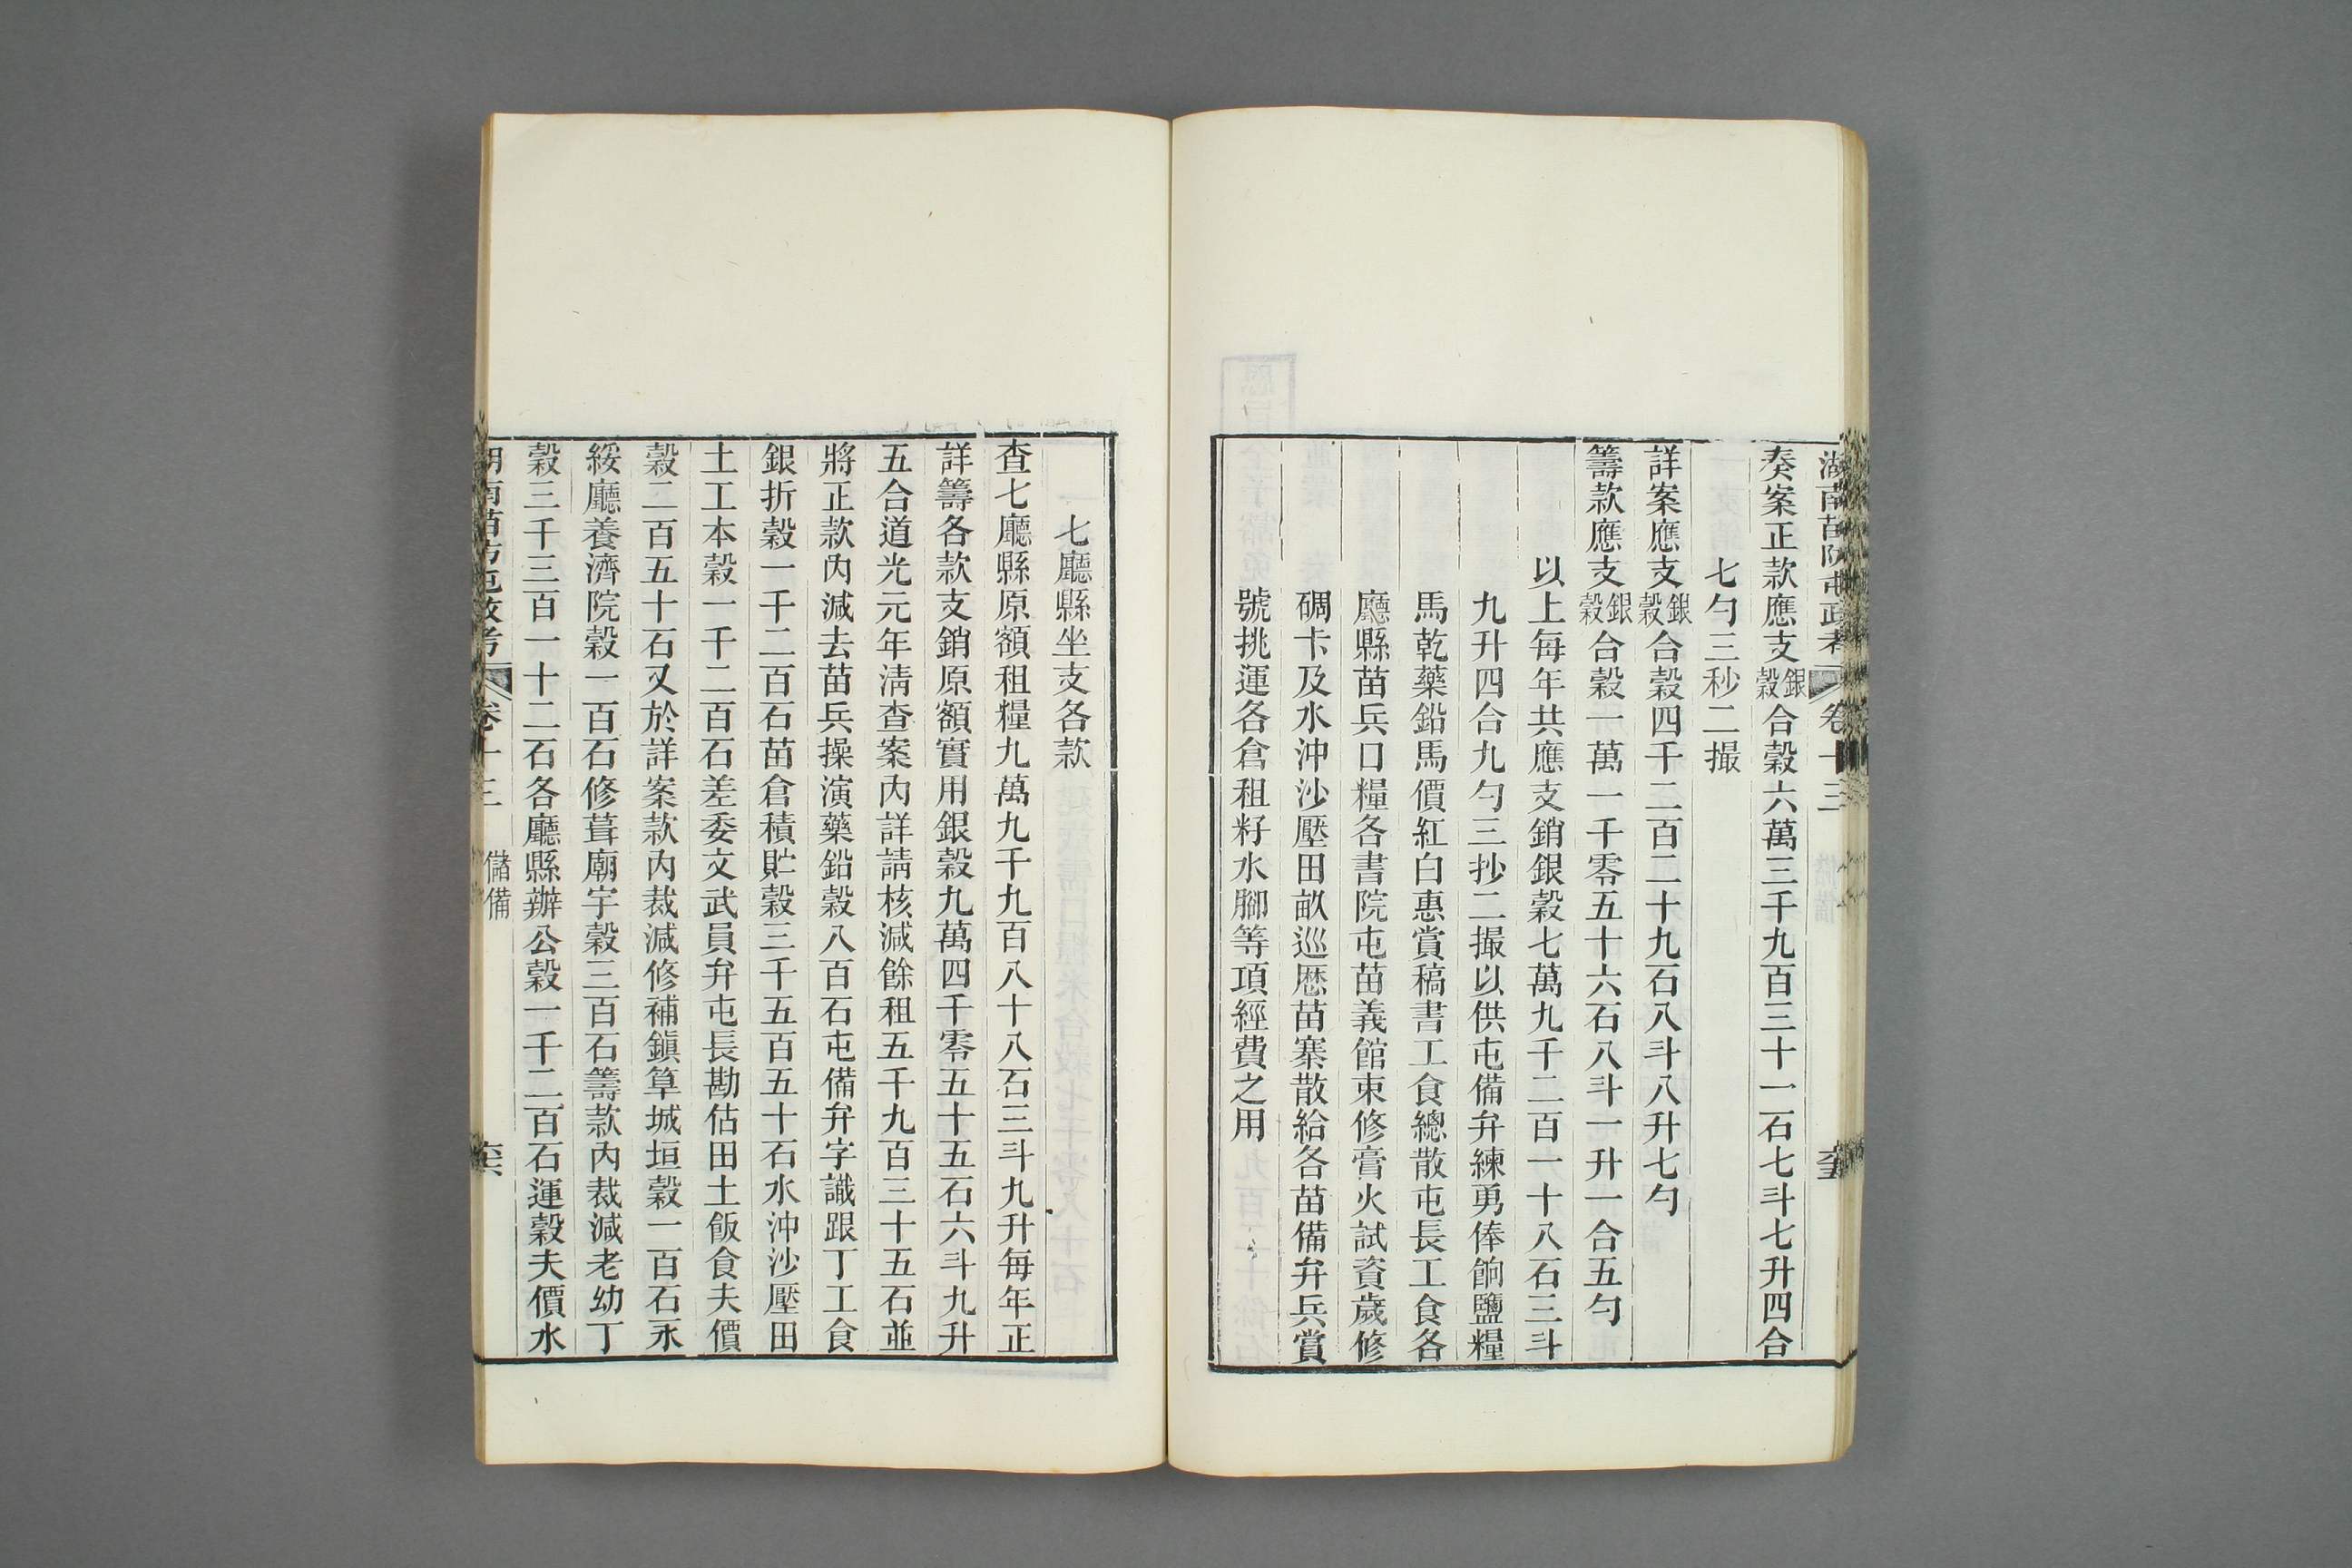 湖南苗防屯政考 卷十三 儲備
奏案正款應支銀穀合穀六萬三千九百三十一石七斗七升四合
七勺三秒二撮
詳案應支銀穀合穀四千二百二十九石八斗八升七勺
籌款應支銀穀合穀一萬一千零五十六石八斗一升一合五勺
以上每年共應支銷銀穀七萬九千二百一十八石三斗
九升四合九勺三抄二撮以供屯備弁練勇俸餉鹽糧
馬乾藥鉛馬價紅白惠賞稿書工食總散屯長工食各
廳縣苗兵口糧各書院屯苗義館束修膏火試資歲修
碉卡及水沖沙壓田畝巡歷苗寨散給各苗備弁兵賞
號挑運各倉租籽水腳等項經費之用
七廳縣坐支各款
查七廳縣原額租糧九萬九千九百八十八石三斗九升每年正
詳籌各款支銷原額實用銀穀九萬四千零五十五石六斗九升
五合道光元年清查案內詳請核減餘租五千九百三十五石並
將正款內減去苗兵操演藥鉛穀八百石屯備弁字識跟丁工食
銀折穀一千二百石苗倉積貯穀三千五百五十石水沖沙壓田
土工本穀一千二百石差委文武員弁屯長勘估田土飯食夫價
穀二百五十石又於詳案款內裁減修補鎭筸城垣穀一百石永
綏廳養濟院穀一百石修葺廟宇穀三百石籌款內裁減老幼丁
穀三千三百一十二石各廳縣辦公穀一千二百石運穀夫價水
湖南苗防屯政考 卷十三 儲備